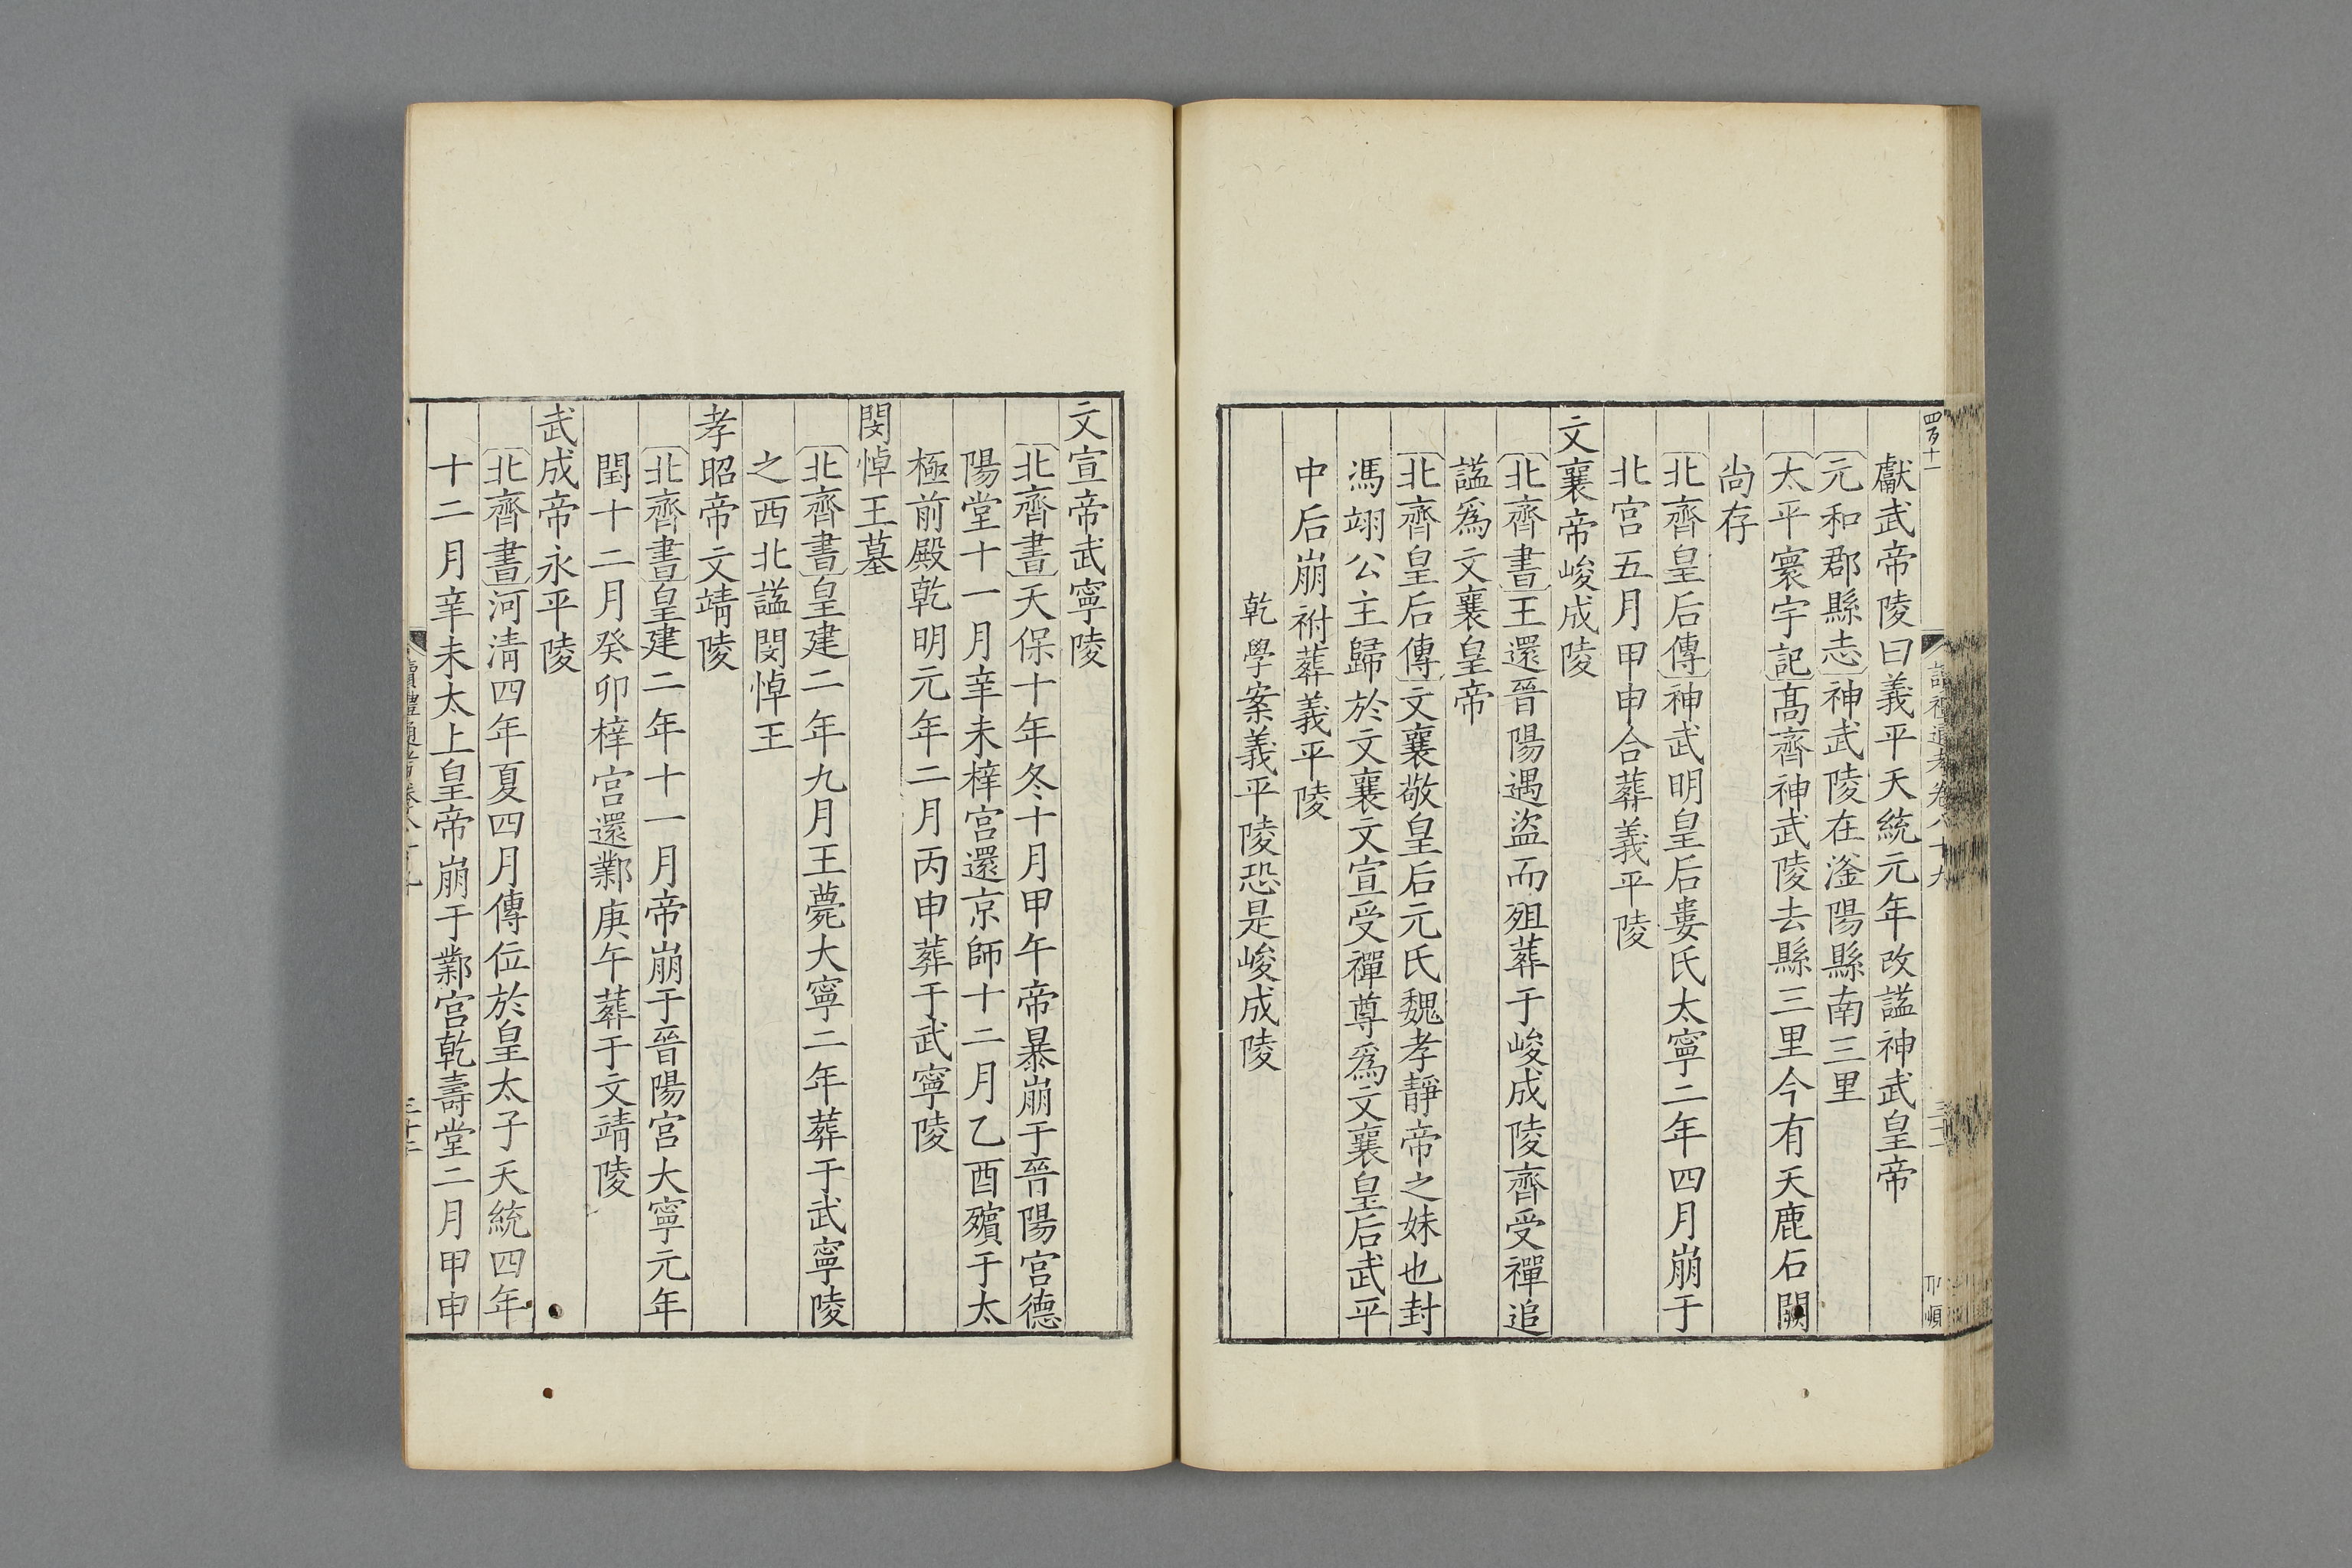 獻武帝陵曰義平天統元年改諡神武皇帝
元和郡縣志神武陵在滏陽縣南三里
太平寰宇記髙齊神武陵去縣三里今有天鹿石闕
尚存
北齊皇后傳神武明皇后婁氏太寧二年四月崩于
北宫五月甲申合葬義平陵
文襄帝峻成陵
北齊書王還晉陽遇盗而殂葬于峻成陵齊受禪追
諡爲文襄皇帝
北齊皇后傳文襄敬皇后元氏魏孝靜帝之妹也封
馮翊公主歸於文襄文宣受禪尊爲文襄皇后武平
中后崩祔葬義平陵
乾學案義平陵恐是峻成陵
文宣帝武寧陵
北齊書天保十年冬十月甲午帝暴崩于晉陽宫德
陽堂十一月辛未梓宫還京師十二月乙酉殯于太
極前殿乾明元年二月丙申葬于武寧陵
閔悼王墓
北齊書皇建二年九月王薨大寧二年葬于武寧陵
之西北諡閔悼王
孝昭帝文靖陵
北齊書皇建二年十一月帝崩于晉陽宫大寧元年
閏十二月癸卯梓宫還鄴庚午葬于文靖陵
武成帝永平陵
北齊書河清四年夏四月傳位於皇太子天統四年
十二月辛未太上皇帝崩于鄴宫乾壽堂二月甲申